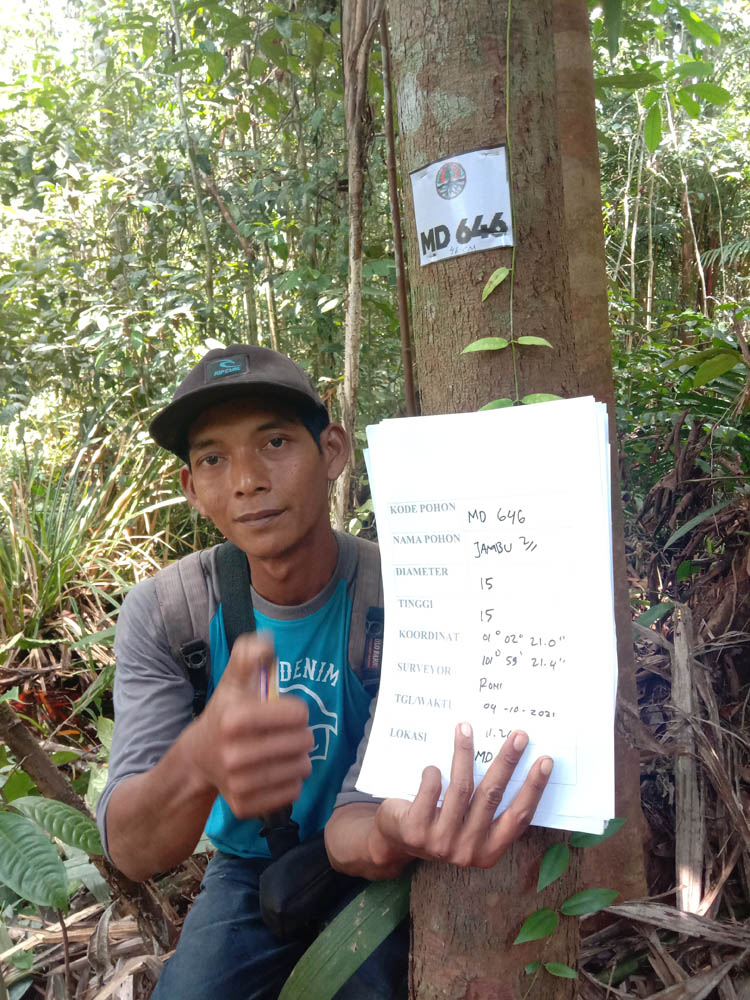 MD 646
46 CM
RIPCURL
DENIM
KODE POHON MD 646
NAMA POHON JAMBU 2//
DIAMETER 15
TINGGI 15
KOORDINAT 01° 02' 21.0"
101° 59' 21.4"
SURVEYOR RONI
TGL/WAKTU 04-10-2021
11.2
LOKASI MD